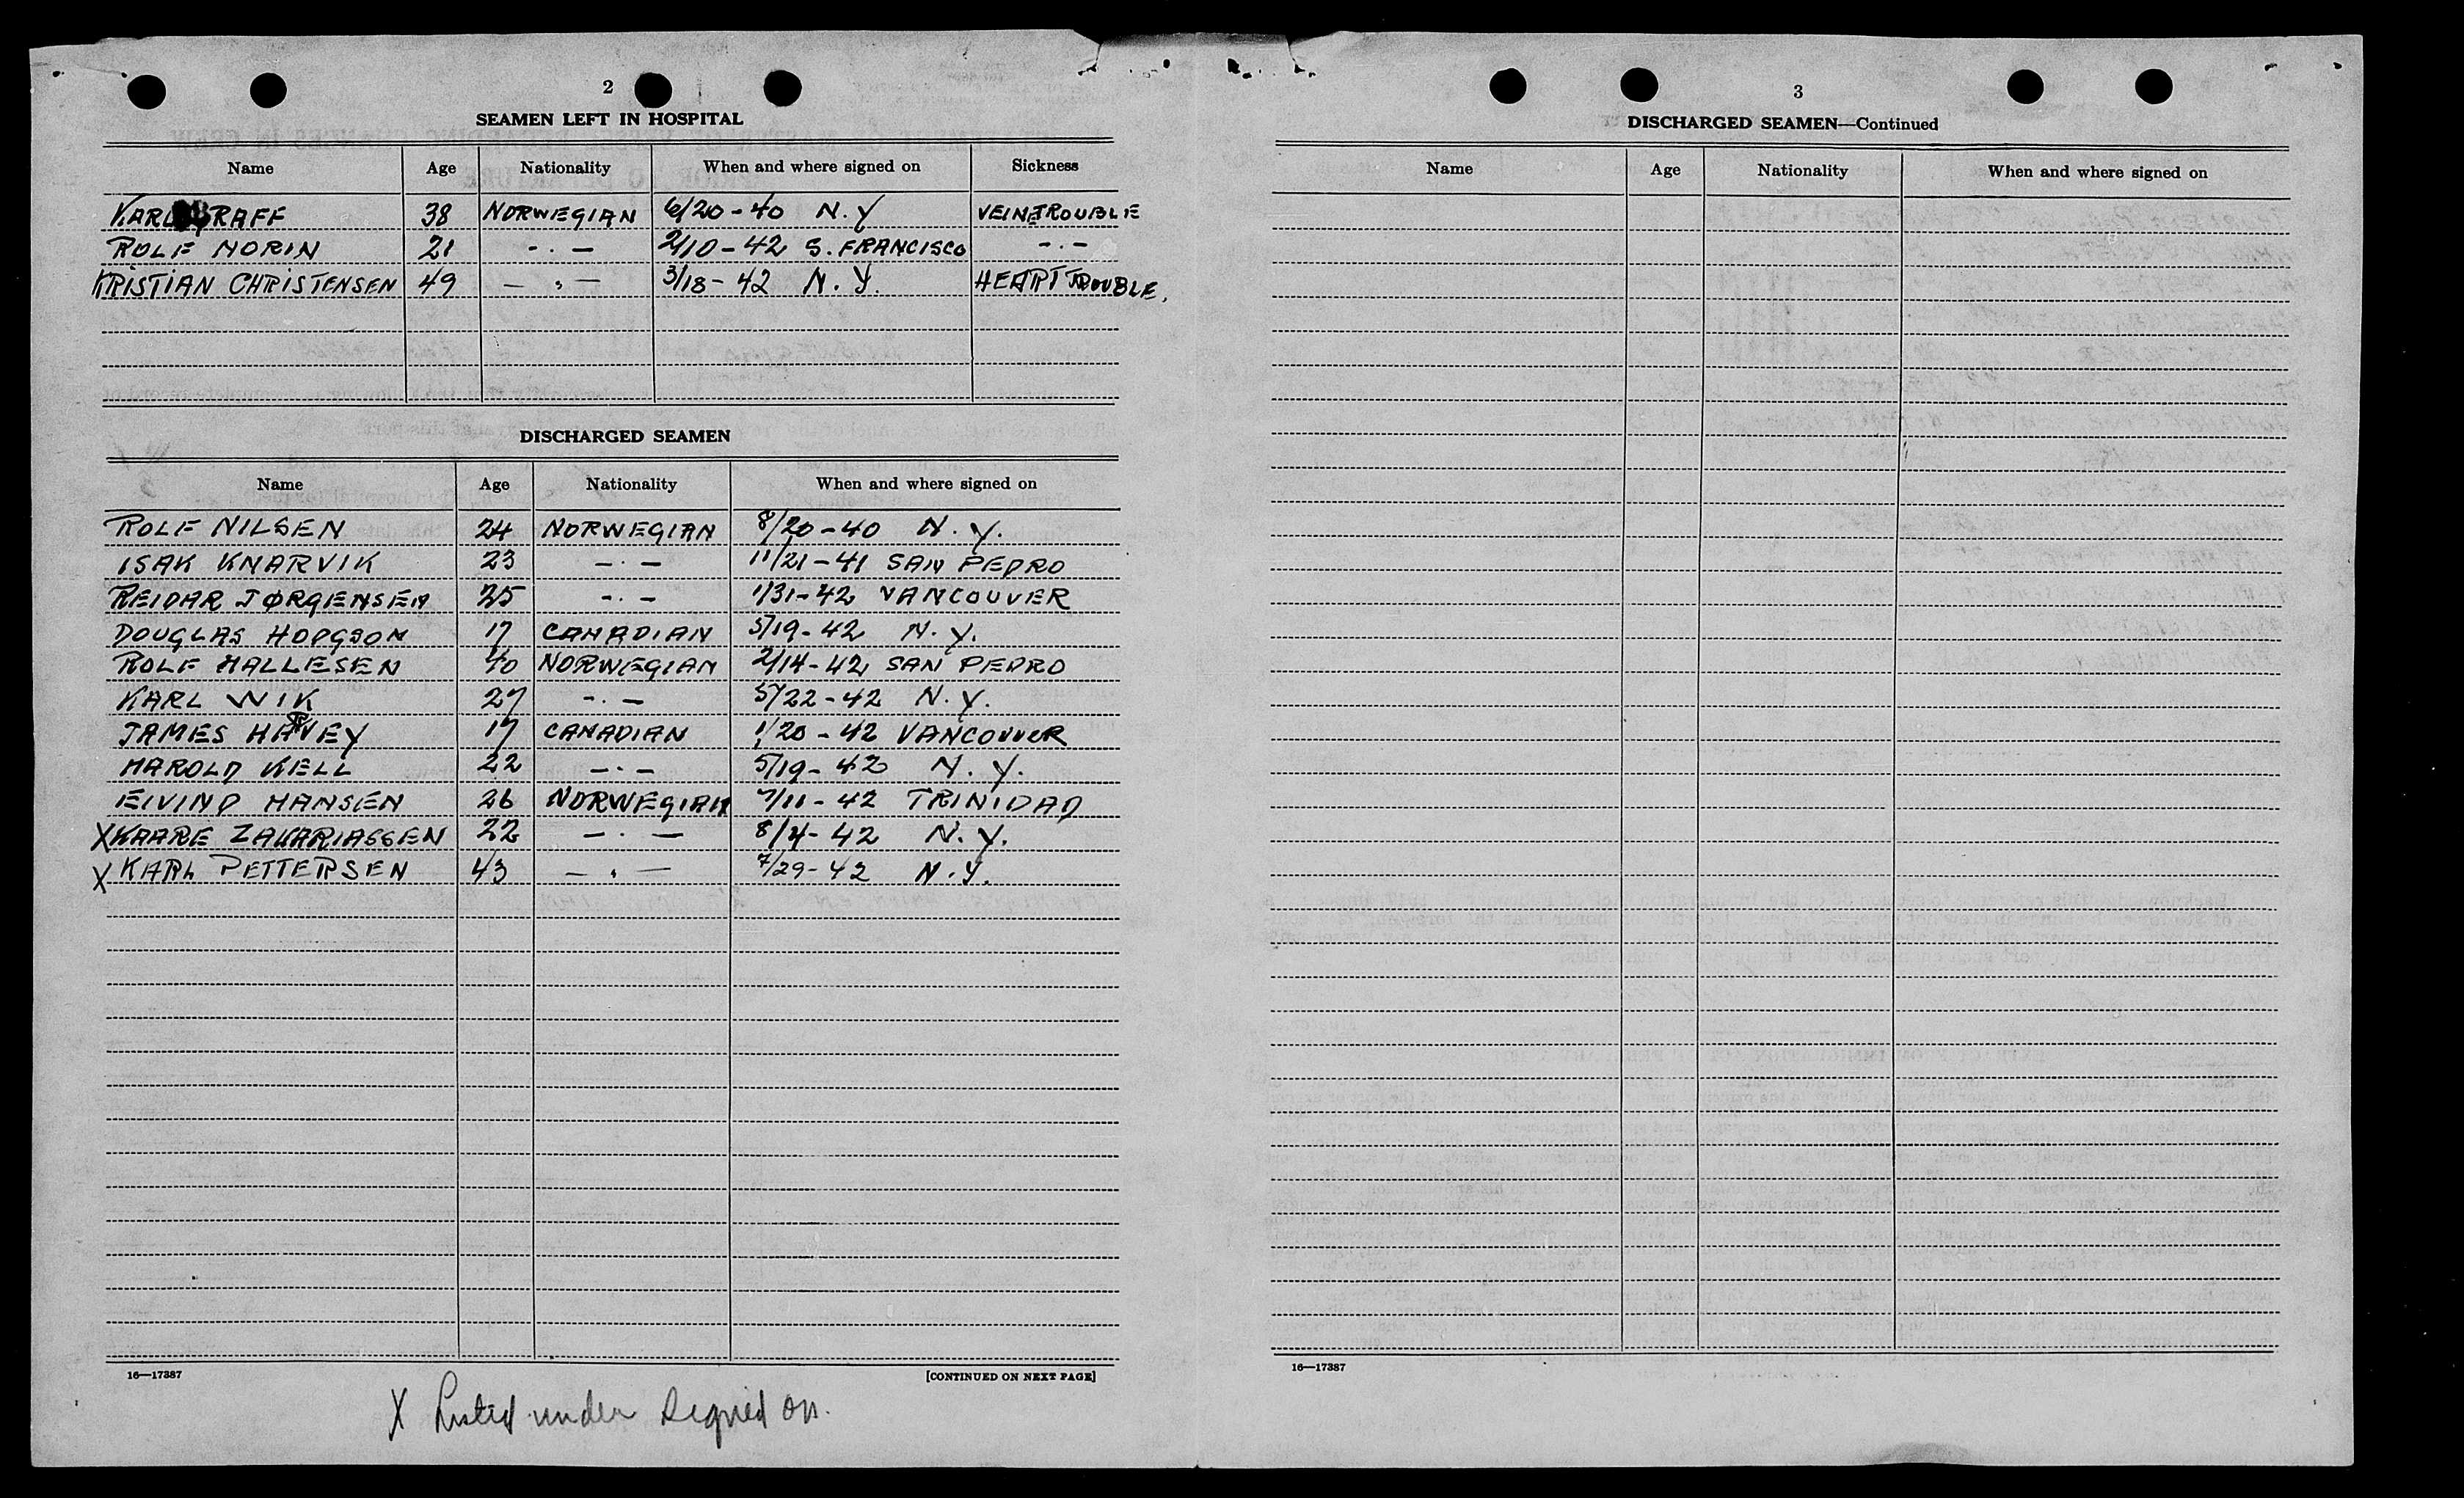 2
SEAMEN LEFT IN HOSPITAL
Name Age Nationality When and where signed on Sickness
KARL GRAFF 38 NORWEGIAN 6/20-40 N.Y VEINETROUBLE
ROLF NORIN 21 -.- 2/10-42 S. FRANCISCO -.-
KRISTIAN CHRISTENSEN 49 -.- 3/18-42 N.Y. HEART TROUBLE.
DISCHARGED SEAMEN
Name Age Nationality When and where signed on
ROLF NILSEN 24 NORWEGIAN 8/20-40 N.Y.
ISAK KNARVIK 23 -.- 11/21-41 SAN PEDRO
REIDAR JØRGENSEN 25 -.- 1/31-42 VANCOUVER
DOUGLAS HODGSON 17 CANADIAN 5/19-42 N.Y.
ROLF HALLESEN 40 NORWEGIAN 2/14-42 SAN PEDRO
KARL WIK 27 -.- 5/22-42 N.Y.
JAMES HARVEY 17 CANADIAN 1/20-42 VANCOUVER
HAROLD KELL 22 -.- 5/19-42 N.Y.
EIVIND HANSEN 26 NORWEGIAN 7/11-42 TRINIDAD
X KAARE ZAKARIASSEN 22 -.- 8/4-42 N.Y.
X KARL PETTERSEN 43 -.- 7/29-42 N.Y.
16—17387 [CONTINUED ON NEXT PAGE]
X Listed under signed on.
3
DISCHARGED SEAMEN—Continued
Name Age Nationality When and where signed on
16—17387